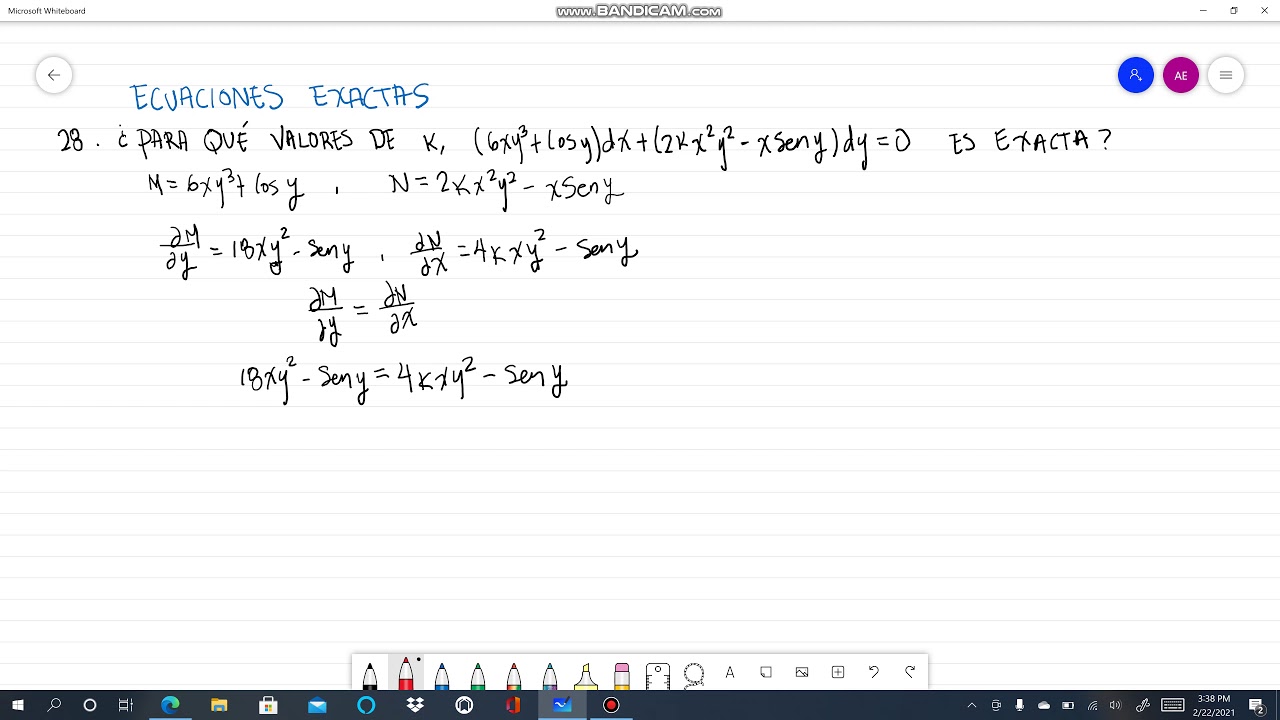 Microsoft Whiteboard
www.BANDICAM.com
AE
ECUACIONES EXACTAS
28. ¿PARA QUÉ VALORES DE K, (6xy³+Cosy)dx+(2Kx²y²-xSeny)dy=0 ES EXACTA?
M=6xy³+Cosy , N=2Kx²y²-xSeny
∂M/∂y = 18xy²-Seny , ∂N/∂x = 4Kxy²-Seny
∂M/∂y = ∂N/∂x
18xy²-Seny = 4Kxy²-Seny
A
3:38 PM
2/22/2021
2